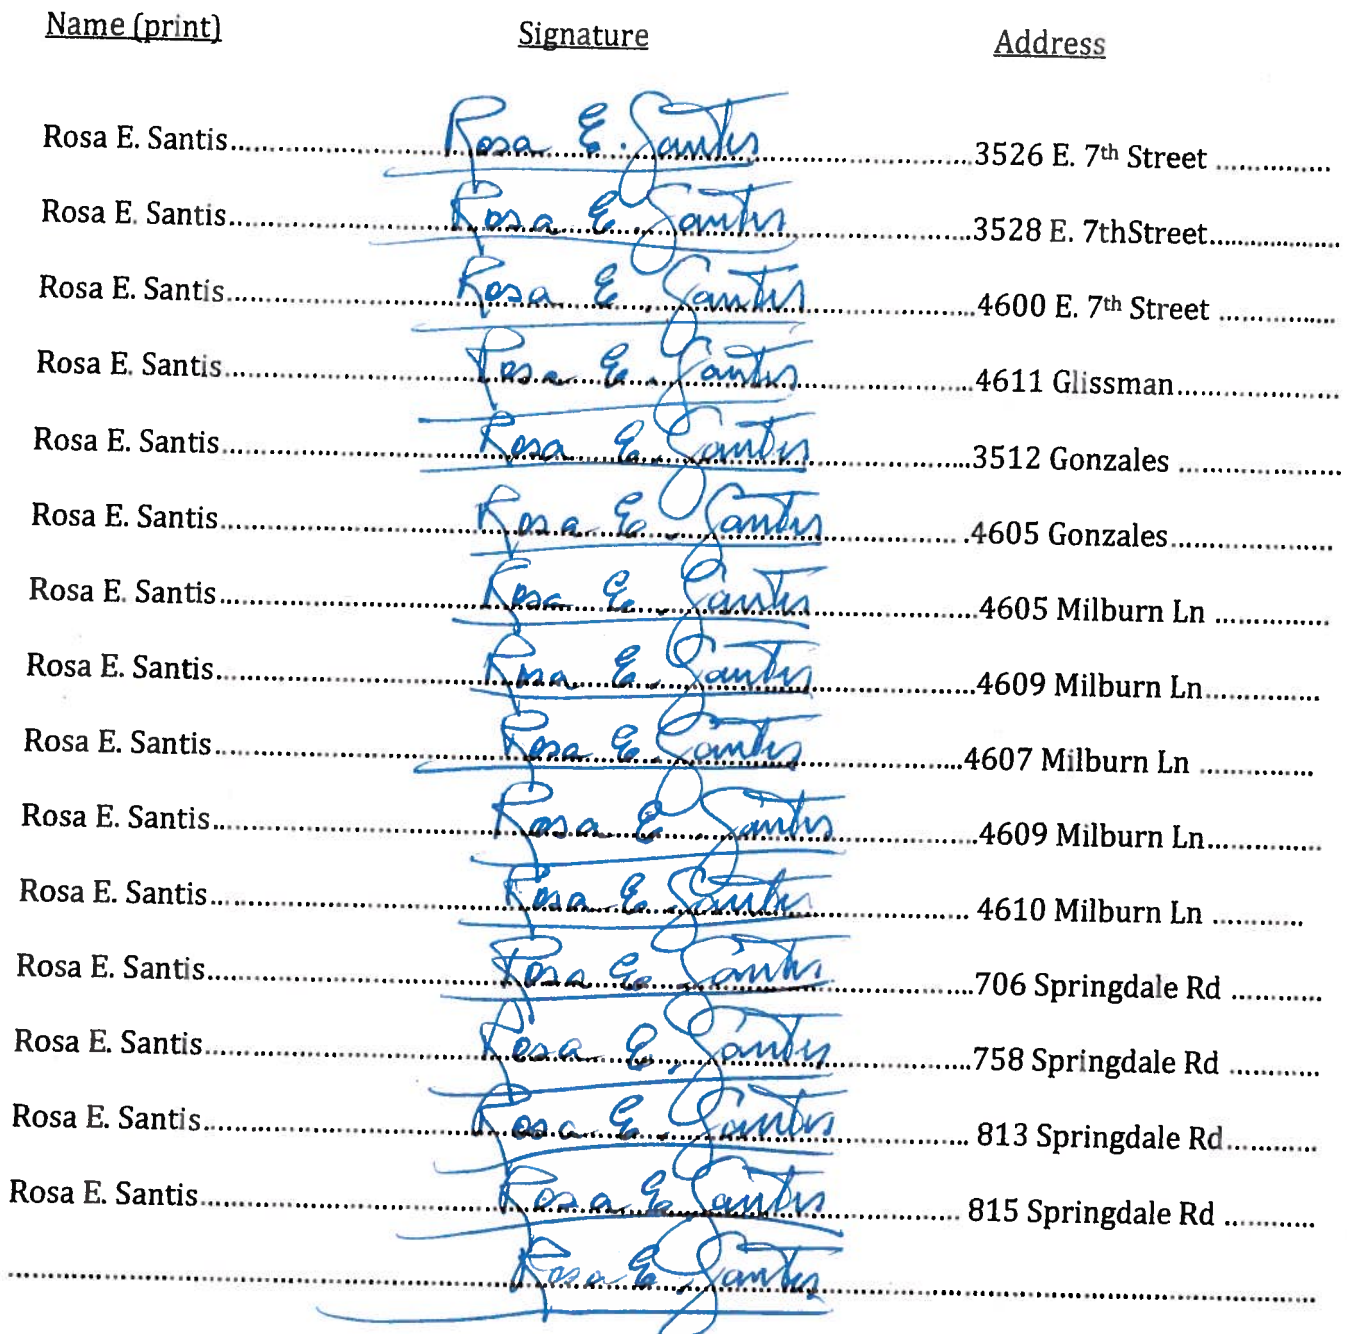 Name (print) Signature Address
Rosa E. Santis Rosa E. Santis 3526 E. 7th Street
Rosa E. Santis Rosa E. Santis 3528 E. 7thStreet
Rosa E. Santis Rosa E Santis 4600 E. 7th Street
Rosa E. Santis Rosa E. Santis 4611 Glissman
Rosa E. Santis Rosa E. Santis 3512 Gonzales
Rosa E. Santis Rosa E. Santis 4605 Gonzales
Rosa E. Santis Rosa E. Santis 4605 Milburn Ln
Rosa E. Santis Rosa E. Santis 4609 Milburn Ln
Rosa E. Santis Rosa E. Santis 4607 Milburn Ln
Rosa E. Santis Rosa E. Santis 4609 Milburn Ln
Rosa E. Santis Rosa E. Santis 4610 Milburn Ln
Rosa E. Santis Rosa E. Santis 706 Springdale Rd
Rosa E. Santis Rosa E. Santis 758 Springdale Rd
Rosa E. Santis Rosa E. Santis 813 Springdale Rd
Rosa E. Santis Rosa E. Santis 815 Springdale Rd
Rosa E. Santis